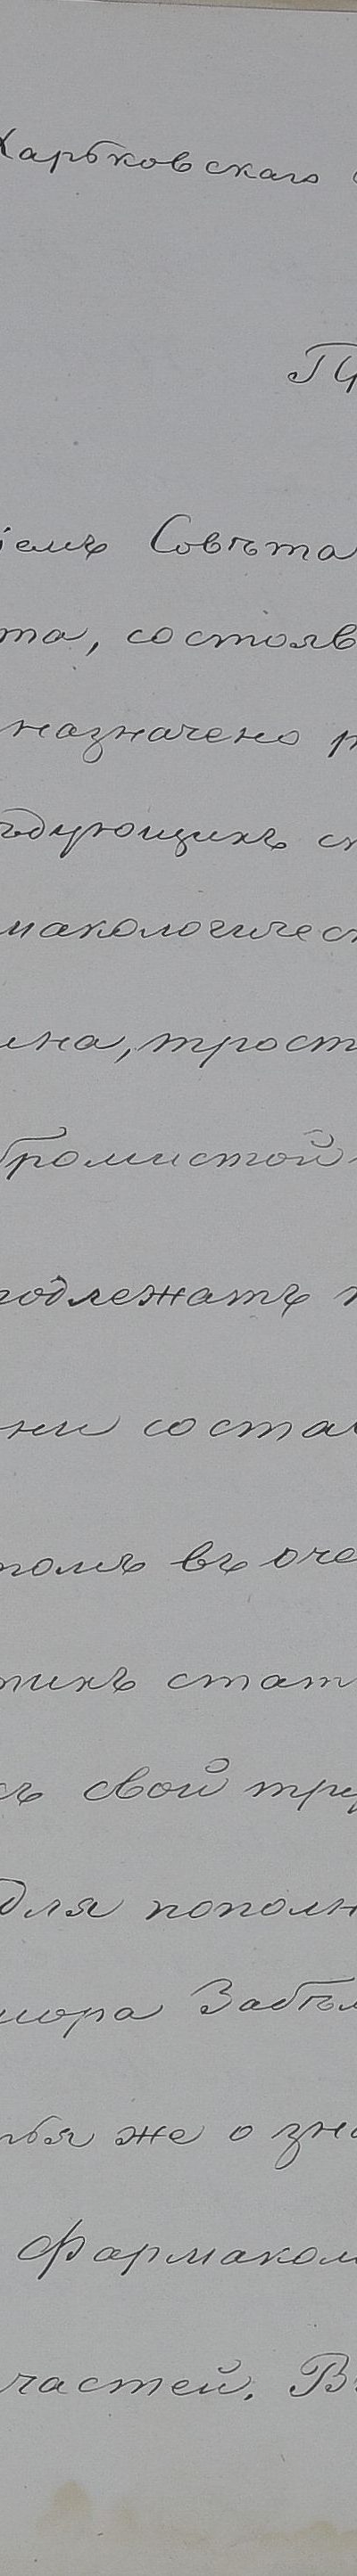 Харьковскаго
Пр
іемъ Совѣта
та, состояв
назначено р
ѣдующихъ ст
макологическ
ина, трост
бромистой
подлежатъ п
ни состав
томъ въ оче
тихъ стат
съ свой тру
для пополн
сора Забѣл
тья же о зна
Фармакол
частей. Въ